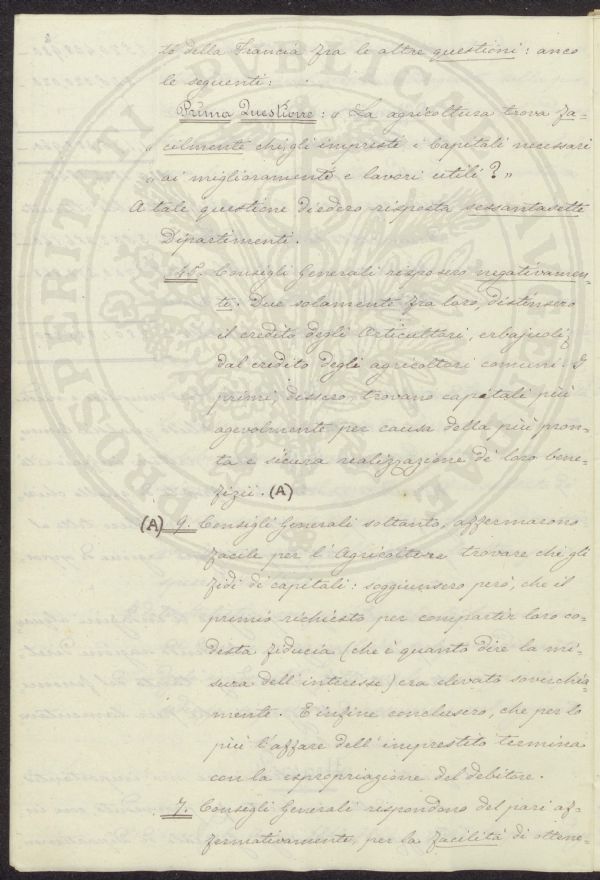 to della Francia fra le altre questioni: anco
le seguenti:
Prima Questione: « La agricoltura trova fa-
« cilmente chi gli impresti i Capitali necessari
« ai miglioramenti e lavori utili? »
A tale questione diedero risposta sessantasette
Dipartimenti.
45. Consigli Generali risposero negativamen-
te. Due solamente fra loro, distinsero
il credito degli Orticultori, erbajuoli,
dal credito degli agricoltori comuni. I
primi, dissero, trovano capitali più
agevolmente per causa della più pron-
ta e sicura realizzazione de' loro bene-
fizii. (A)
(A) 9. Consigli Generali soltanto, affermarono
facile per l'Agricoltore trovare chi gli
fidi de' capitali: soggiunsero però, che il
premio richiesto per compartir loro co-
desta fiducia (che è quanto dire la mi-
sura dell'interesse) era elevato soverchia-
mente. E infine conclusero, che per lo
più l'affare dell'imprestito termina
con la espropriazione del debitore.
7. Consigli Generali rispondono del pari af-
fermativamente, per la facilità di ottene-
PROSPERITATI PUBLICAE AUGENDAE